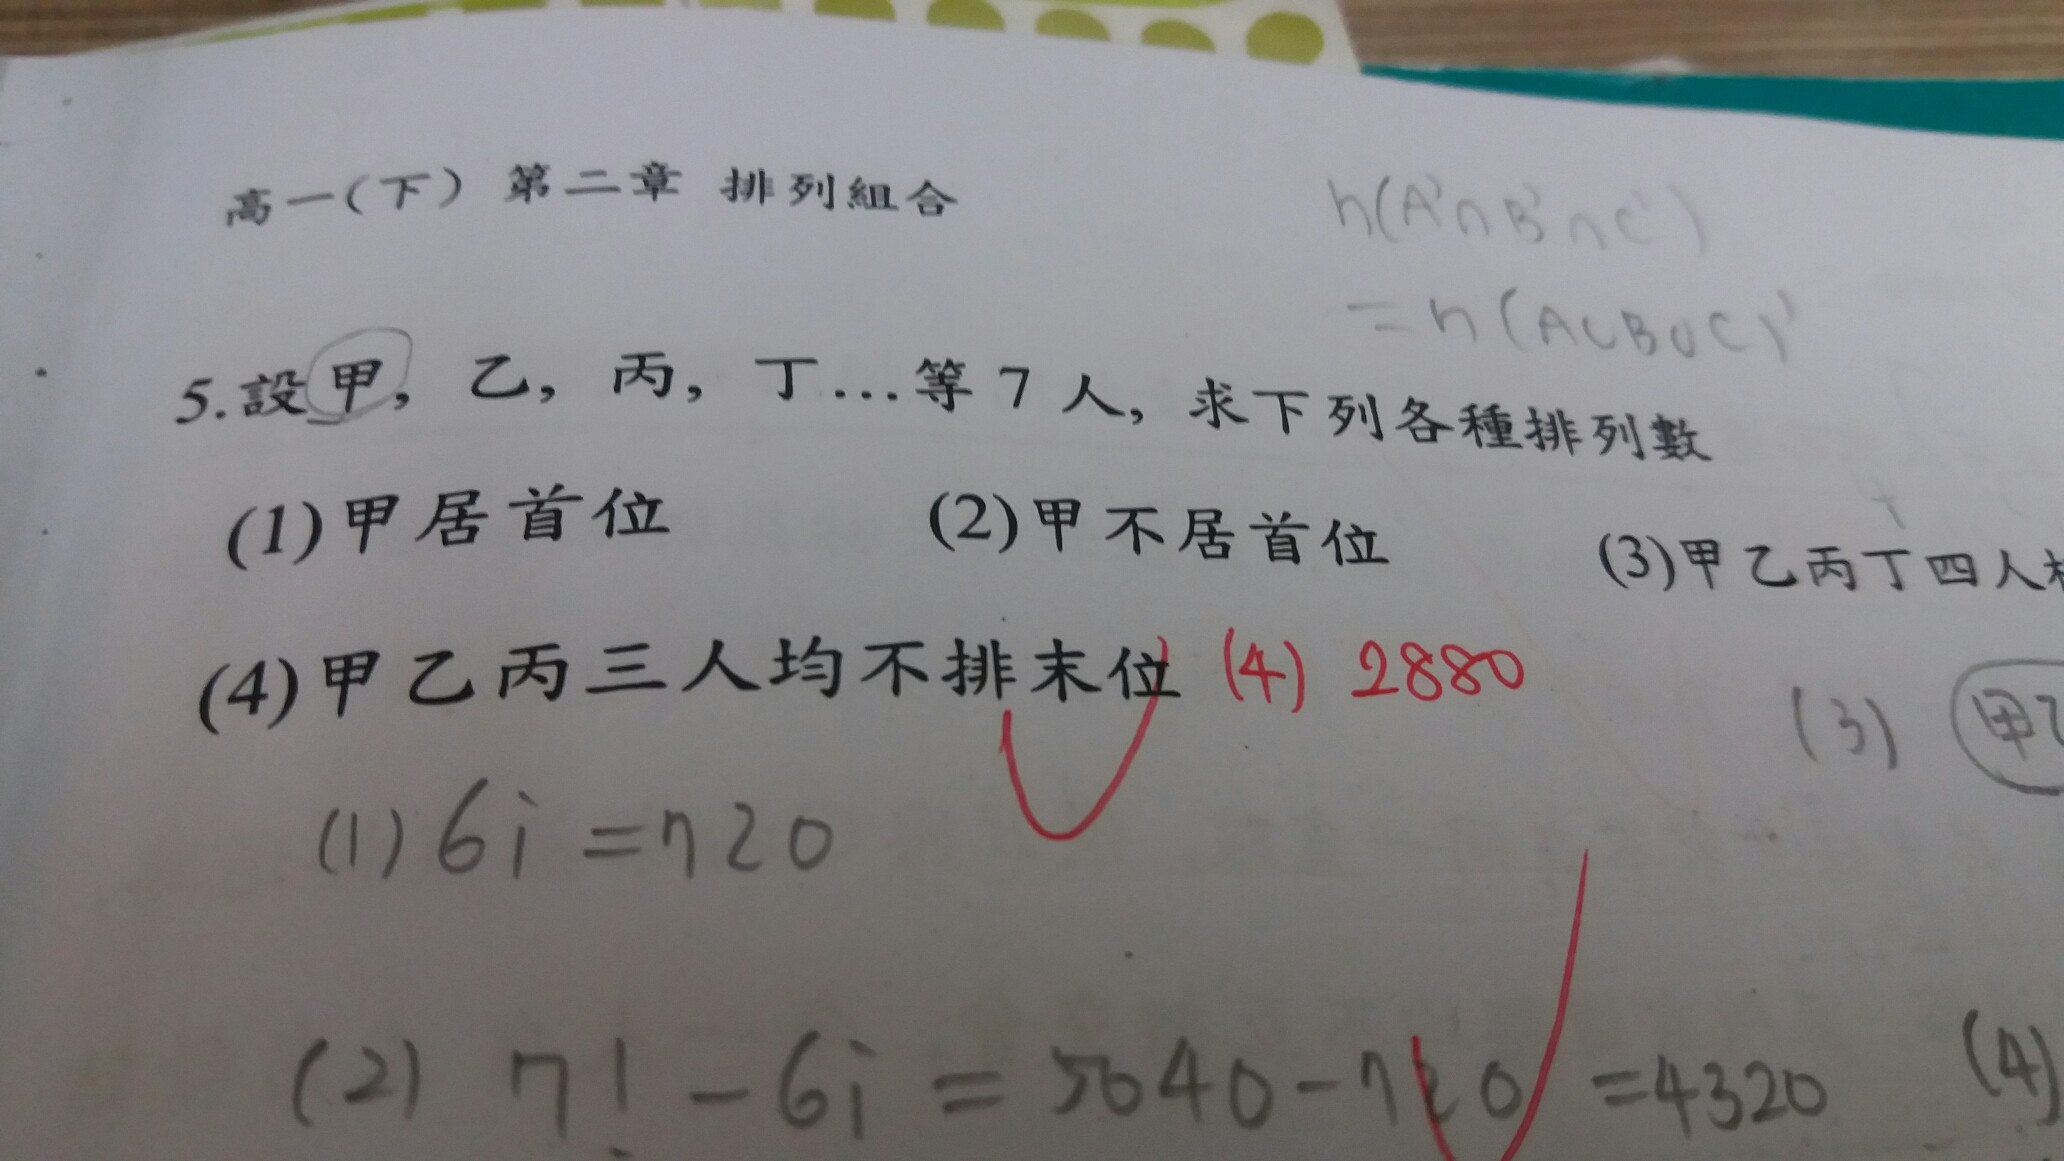 高一(下) 第二章 排列組合
n(A'∩B'∩C')
=n(A∪B∪C)'
5.設甲, 乙, 丙, 丁…等 7 人, 求下列各種排列數
(1)甲居首位 (2)甲不居首位 (3)甲乙丙丁四人
(4)甲乙丙三人均不排末位 (4) 2880
(3) 甲
(1) 6! =720
(2) 7! - 6! = 5040-720 =4320 (4)